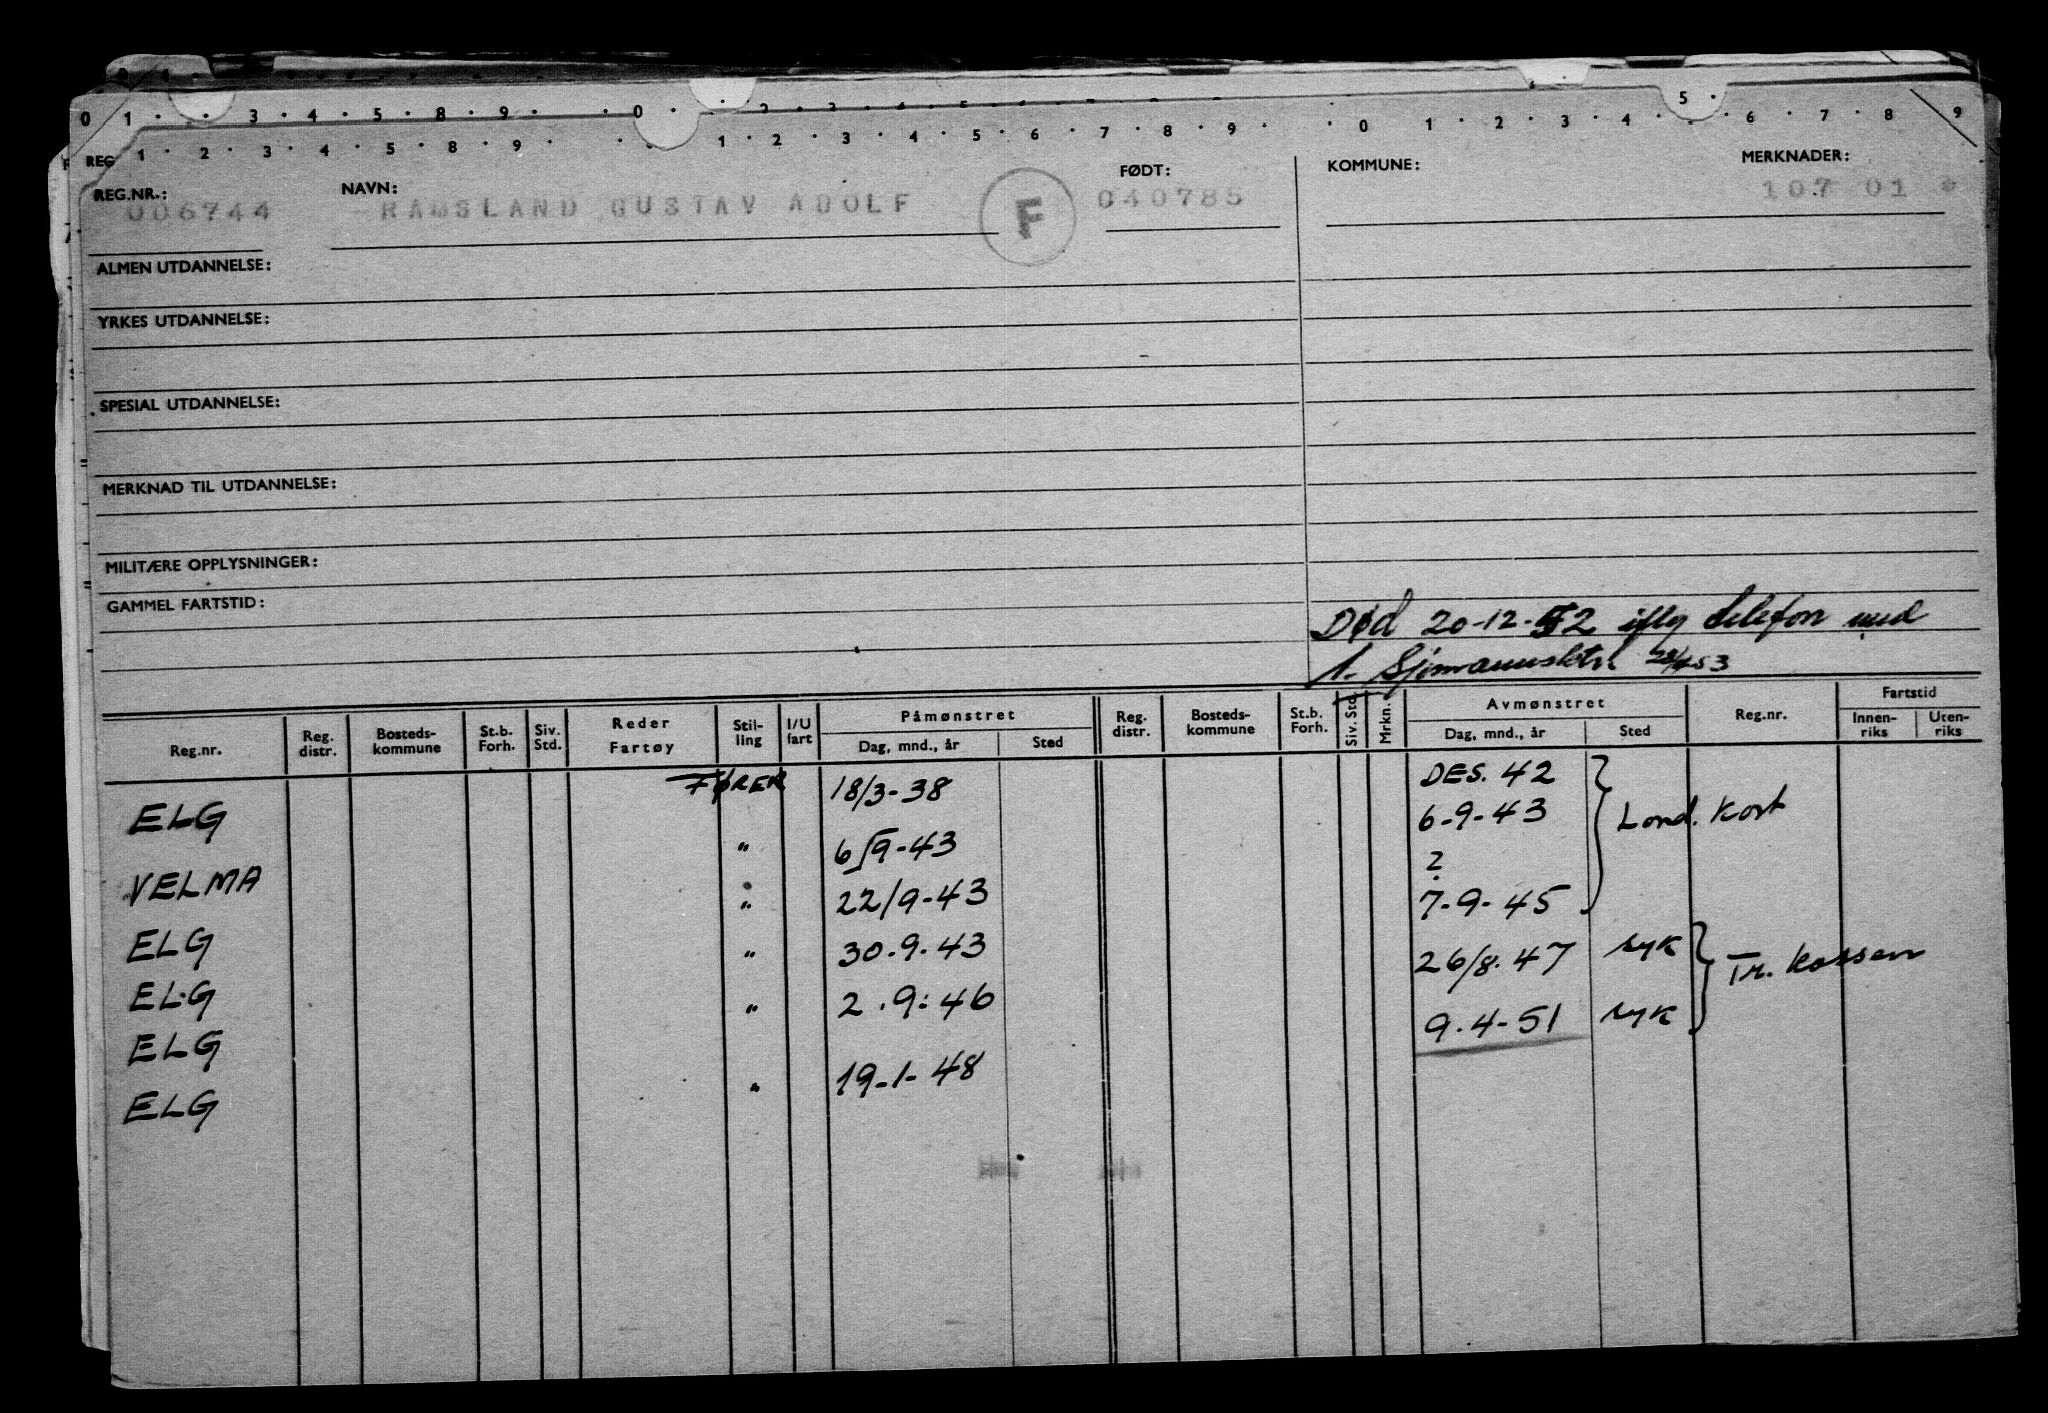 0 1
0 1 · · 3 · 4 · 5 · 8 · 9 · · 0 · · 2 · 3 · 4 · 5 · 6 · 7 · 8 · 9 5 ·
1 · 2 · 3 · 4 · 5 · 8 · 9 · · · 1 · 2 · 3 · 4 · 5 · 6 · 7 · 8 · 9 · · 0 · 1 · 2 · 3 · 4 · · 6 · 7 · 8 · 9
REG
REG.NR.: NAVN: FØDT: KOMMUNE: MERKNADER:
006744 RAMSLAND GUSTAV ADOLF F 040785 107 01 *
ALMEN UTDANNELSE:
YRKES UTDANNELSE:
SPESIAL UTDANNELSE:
MERKNAD TIL UTDANNELSE:
MILITÆRE OPPLYSNINGER:
GAMMEL FARTSTID:
Død 20-12-52 iflg telefon med
1. Sjømannsktr.
Reg.nr. Reg. distr. Bosteds-kommune St.b. Forh. Siv. Std. Reder Fartøy Stil-ling I/U fart Påmønstret Dag, mnd., år Sted Reg. distr. Bosteds-kommune St.b. Forh. Siv. Std. Mrkn. Avmønstret Dag, mnd., år Sted Reg.nr. Fartstid Innen-riks Uten-riks
ELG FØRER 18/3-38 DES. 42
VELMA " 6/9-43 6-9-43 Lond. Kort
ELG " 22/9-43 ?
ELG " 30.9.43 7-9-45
ELG " 2.9.46 26/8.47 syk Tr. kassen
ELG " 19-1-48 9.4-51 syk